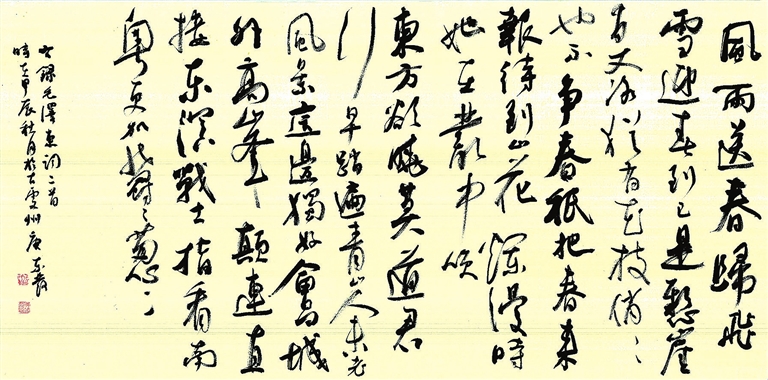 風雨送春歸飛
雪迎春到已是懸崖
百丈冰猶有花枝俏〻
也不爭春祇把春來
報待到山花爛漫時
她在叢中笑
東方欲曉莫道君
行早踏遍青山人未老
風景這邊獨好會昌城
外高峯顛連直
接東溟戰士指看南
粵更加鬱〻蔥〻
錄毛澤東詞二首
時在甲辰秋月於古雲州